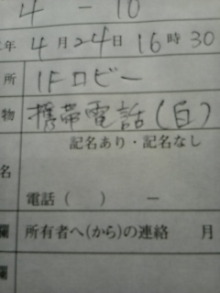 4 - 10
年 4月24日 16時30
所 1Fロビー
物 携帯電話(白)
記名あり・記名なし
名
電話( ) ―
欄 所有者へ(から)の連絡 月
欄